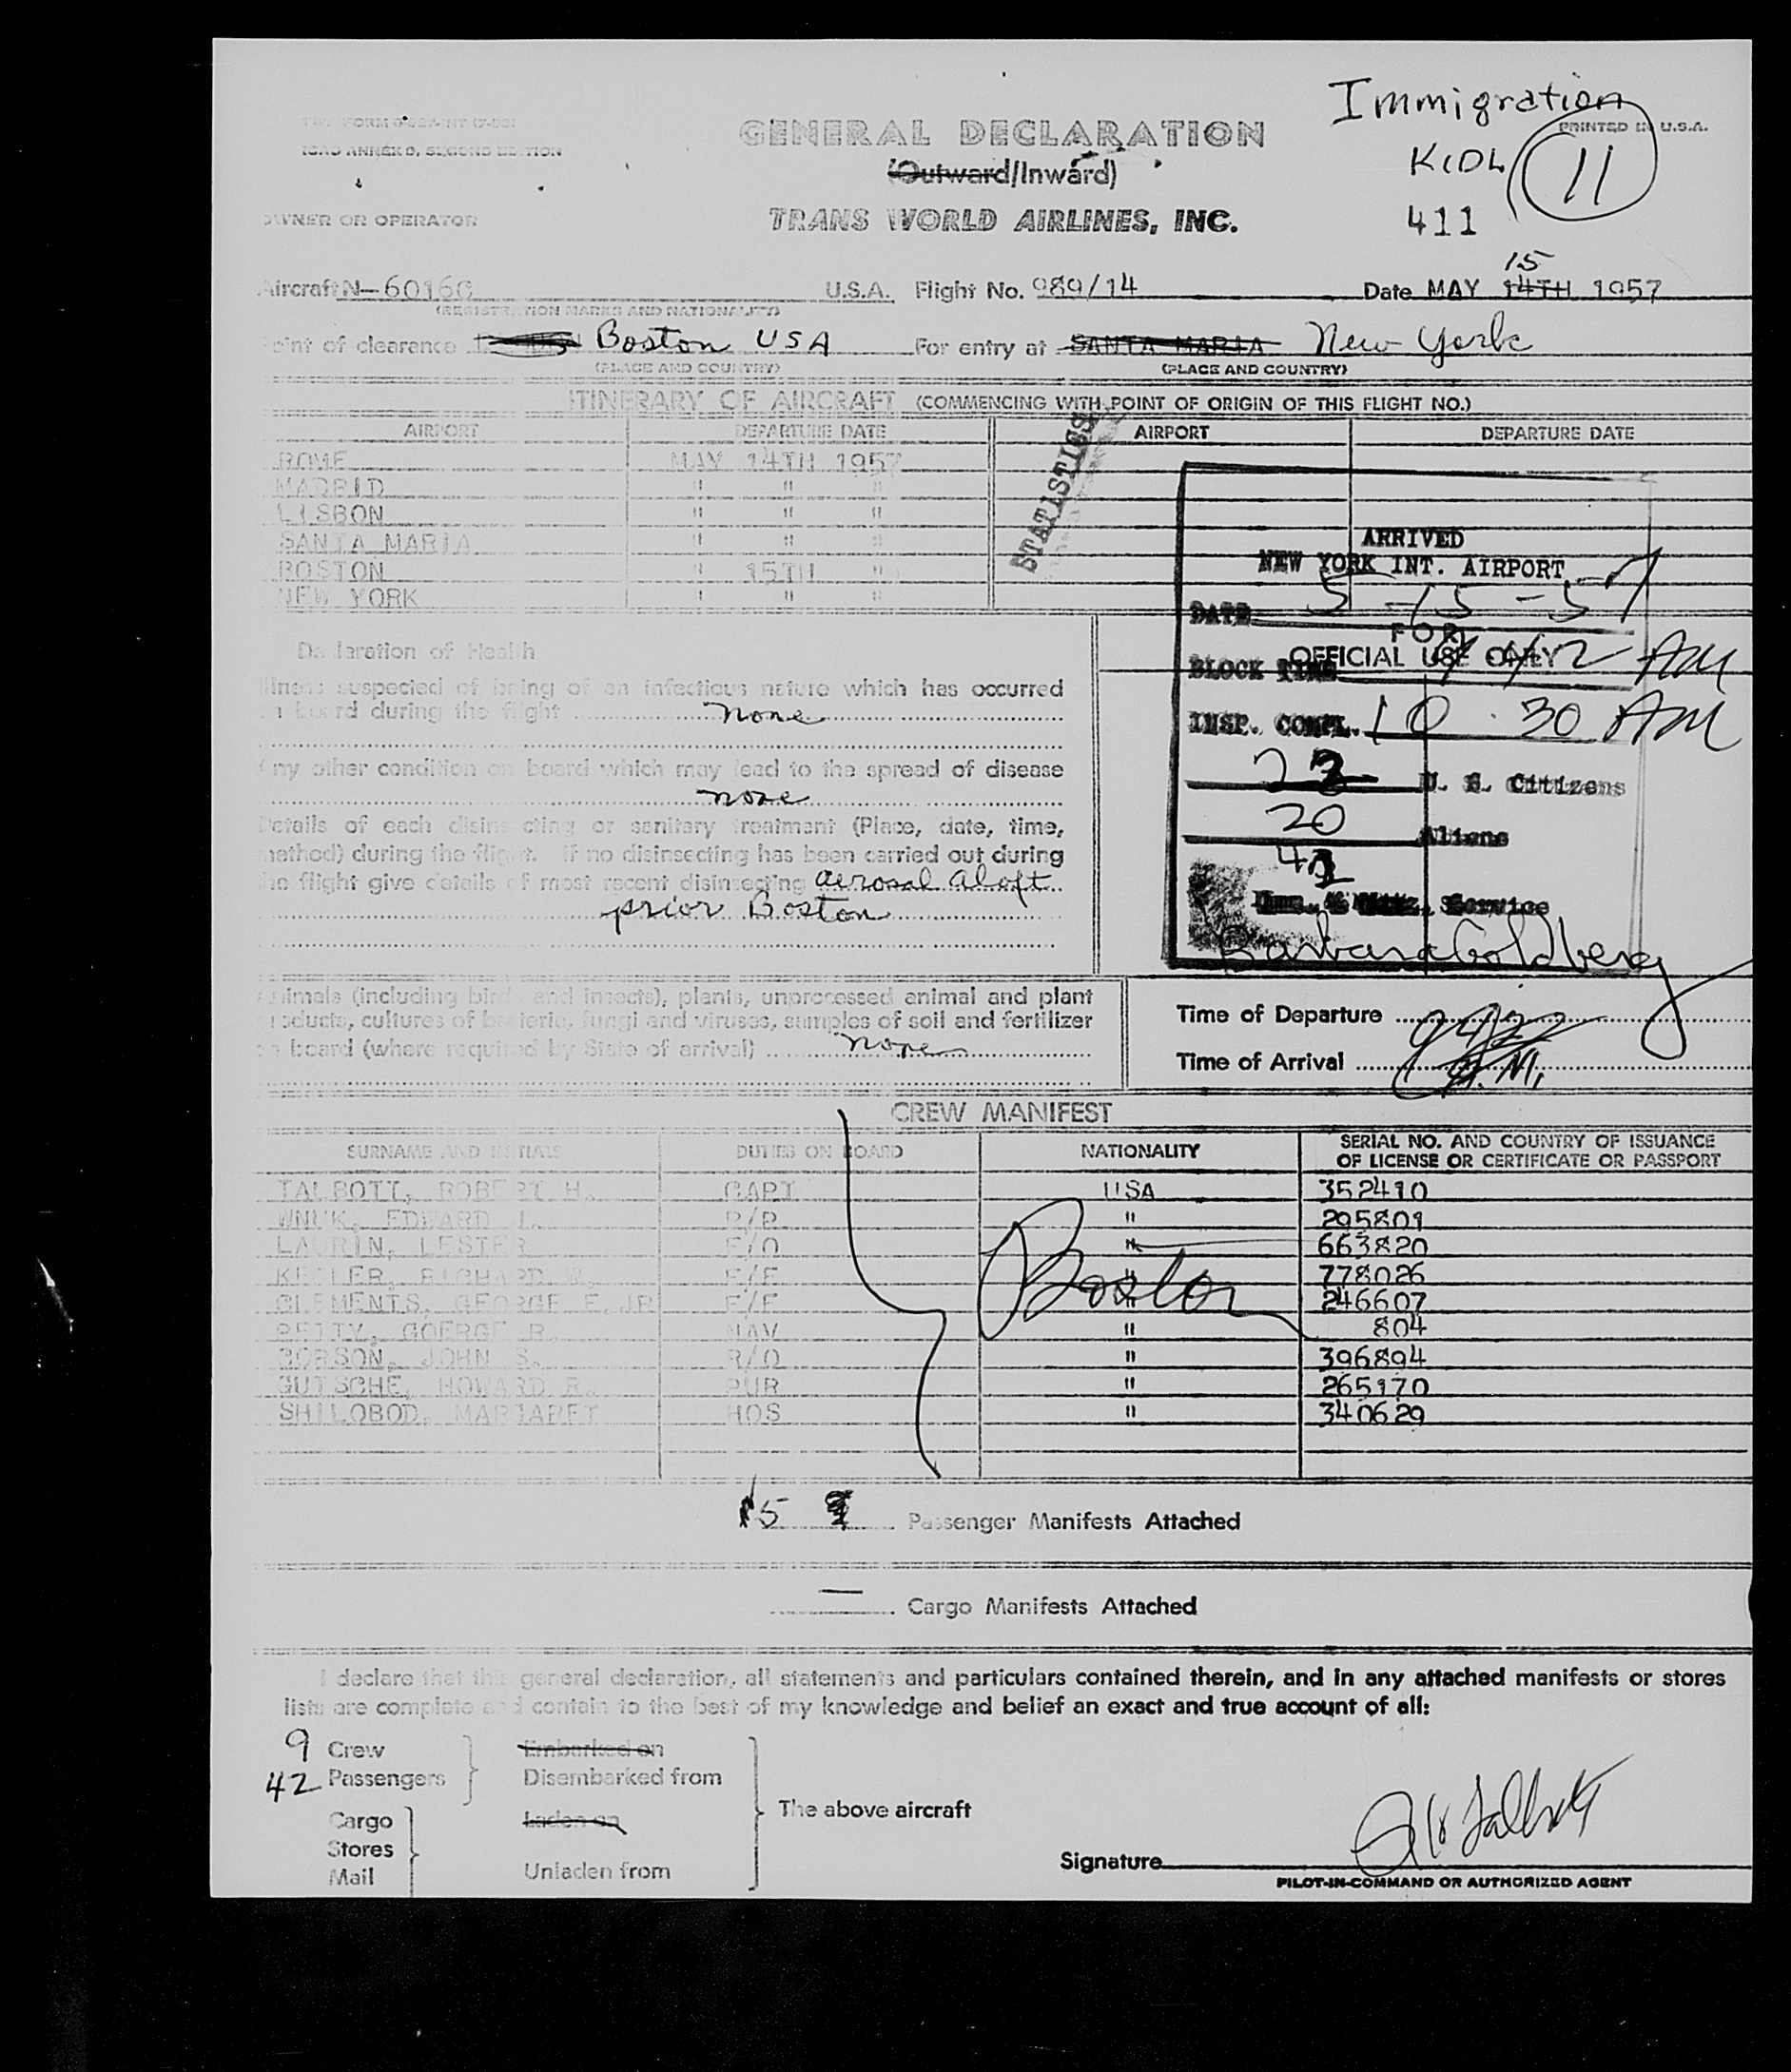 Immigration
PRINTED IN U.S.A.
ICAO ANNEX 9, SECOND EDITION
GENERAL DECLARATION
KIDL 11
(Outward/Inward)
OWNER OR OPERATOR
TRANS WORLD AIRLINES, INC.
411
15
Aircraft N-6016C U.S.A. Flight No. 989/14 Date MAY 14TH 1957
(REGISTRATION MARKS AND NATIONALITY)
Point of clearance Boston USA For entry at SANTA MARIA New York
(PLACE AND COUNTRY) (PLACE AND COUNTRY)
ITINERARY OF AIRCRAFT (COMMENCING WITH POINT OF ORIGIN OF THIS FLIGHT NO.)
AIRPORT DEPARTURE DATE AIRPORT DEPARTURE DATE
ROME MAY 14TH 1957
MADRID " " "
LISBON " " "
SANTA MARIA " " "
BOSTON " 15TH "
NEW YORK " " "
STATISTICS
ARRIVED
NEW YORK INT. AIRPORT
DATE 5-15-57
FOR
OFFICIAL USE ONLY
BLOCK TIME AM
INSP. COMPL. 10 30 AM
U. S. Citizens
20 Aliens
Service
Barbara Goldberg
Declaration of Health
Illness suspected of being of an infectious nature which has occurred
on board during the flight none
Any other condition on board which may lead to the spread of disease
none
Details of each disinsecting or sanitary treatment (Place, date, time,
method) during the flight. If no disinsecting has been carried out during
the flight give details of most recent disinsecting aerosol aloft
prior Boston
Animals (including birds and insects), plants, unprocessed animal and plant
products, cultures of bacteria, fungi and viruses, samples of soil and fertilizer
on board (where required by State of arrival) none
Time of Departure
Time of Arrival
CREW MANIFEST
SURNAME AND INITIALS DUTIES ON BOARD NATIONALITY SERIAL NO. AND COUNTRY OF ISSUANCE
OF LICENSE OR CERTIFICATE OR PASSPORT
TALBOTT, ROBERT H. CAPT USA 352410
WNUK, EDWARD J. P/P " 295801
LAURIN, LESTER F/O " 663820
KELLER, RICHARD W. F/E " 778026
CLEMENTS, GEORGE E.JR F/E " 246607
PETTY, GOERGE R. NAV " 804
CORSON, JOHN S. R/O " 396894
GUTSCHE, HOWARD R. PUR " 265170
SHILOBOD, MARGARET HOS " 340629
Boston
5 Passenger Manifests Attached
— Cargo Manifests Attached
I declare that this general declaration, all statements and particulars contained therein, and in any attached manifests or stores
lists are complete and contain to the best of my knowledge and belief an exact and true account of all:
9 Crew Embarked on
42 Passengers Disembarked from
The above aircraft
Cargo Laden on
Stores
Mail Unladen from
Signature
PILOT-IN-COMMAND OR AUTHORIZED AGENT